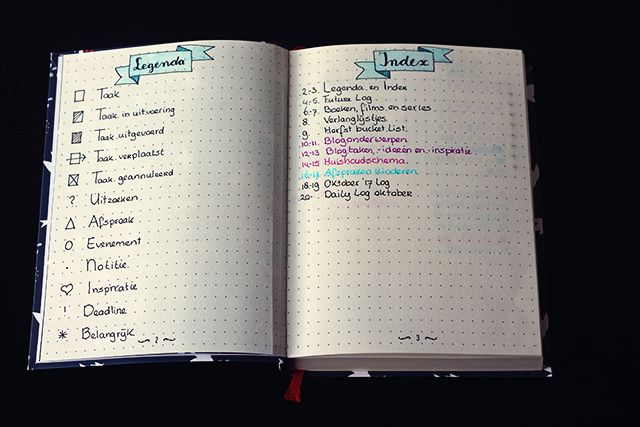 Legenda
Taak
Taak in uitvoering
Taak uitgevoerd
Taak verplaatst
Taak geannuleerd
? Uitzoeken
Afspraak
Evenement
Notitie
Inspiratie
! Deadline
* Belangrijk
2
Index
2-3. Legenda en Index
4-5. Future Log
6-7. Boeken, films en series
8. Verlanglijstjes
9. Herfst bucket List.
10-11. Blogonderwerpen
12-13. Blogtaken, -ideeën en -inspiratie
14-15 Huishoudschema.
16-17 Afspraken kinderen
18-19 Oktober '17 Log
20- Daily Log oktober
3